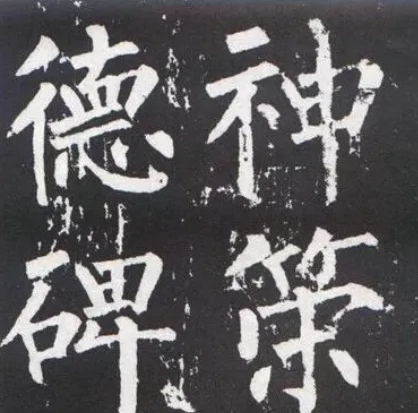 神策
德碑